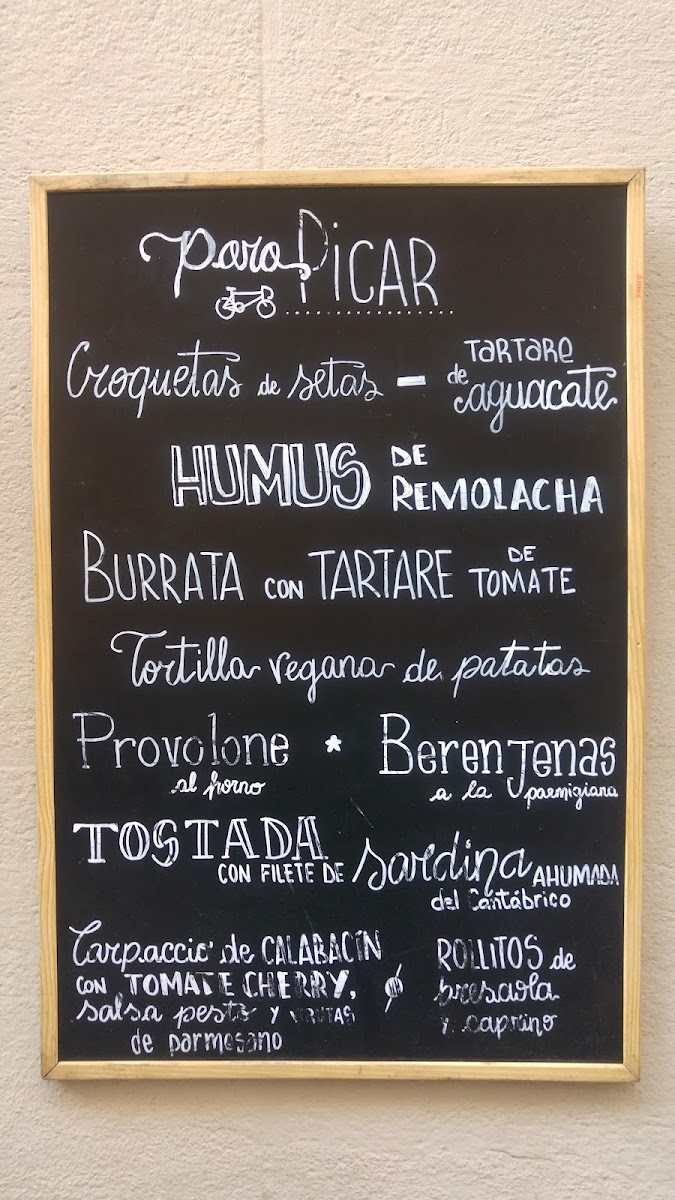 para PICAR
Croquetas de setas - TARTARE de aguacate
HUMUS DE REMOLACHA
BURRATA CON TARTARE DE TOMATE
Tortilla vegana de patatas
Provolone * Berenjenas
al horno a la parmigiana
TOSTADA
CON FILETE DE sardina AHUMADA
del Cantábrico
Carpaccio de CALABACÍN
CON TOMATE CHERRY,
salsa pesto Y VIRUTAS
de parmesano
ROLLITOS de
bresaola
y caprino